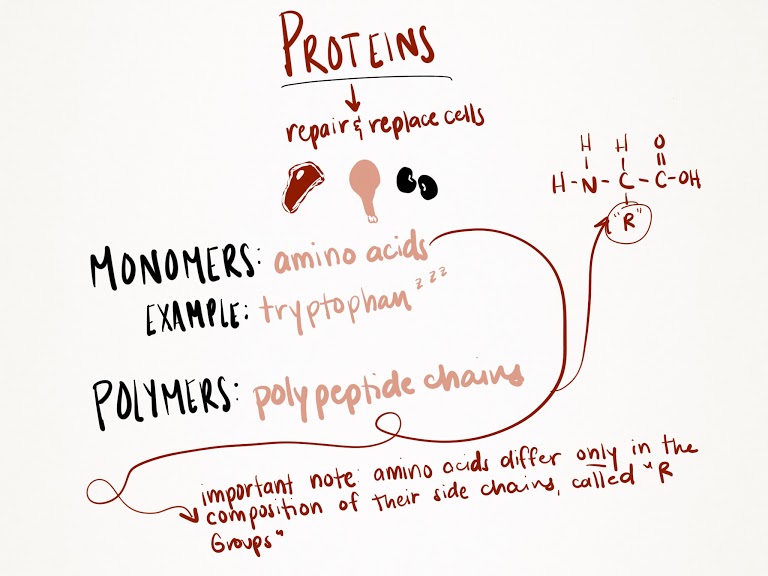 PROTEINS
repair & replace cells
H H O
H-N-C-C-OH
"R"
MONOMERS: amino acids
EXAMPLE: tryptophan zzz
POLYMERS: polypeptide chains
important note: amino acids differ only in the
composition of their side chains, called "R
Groups"